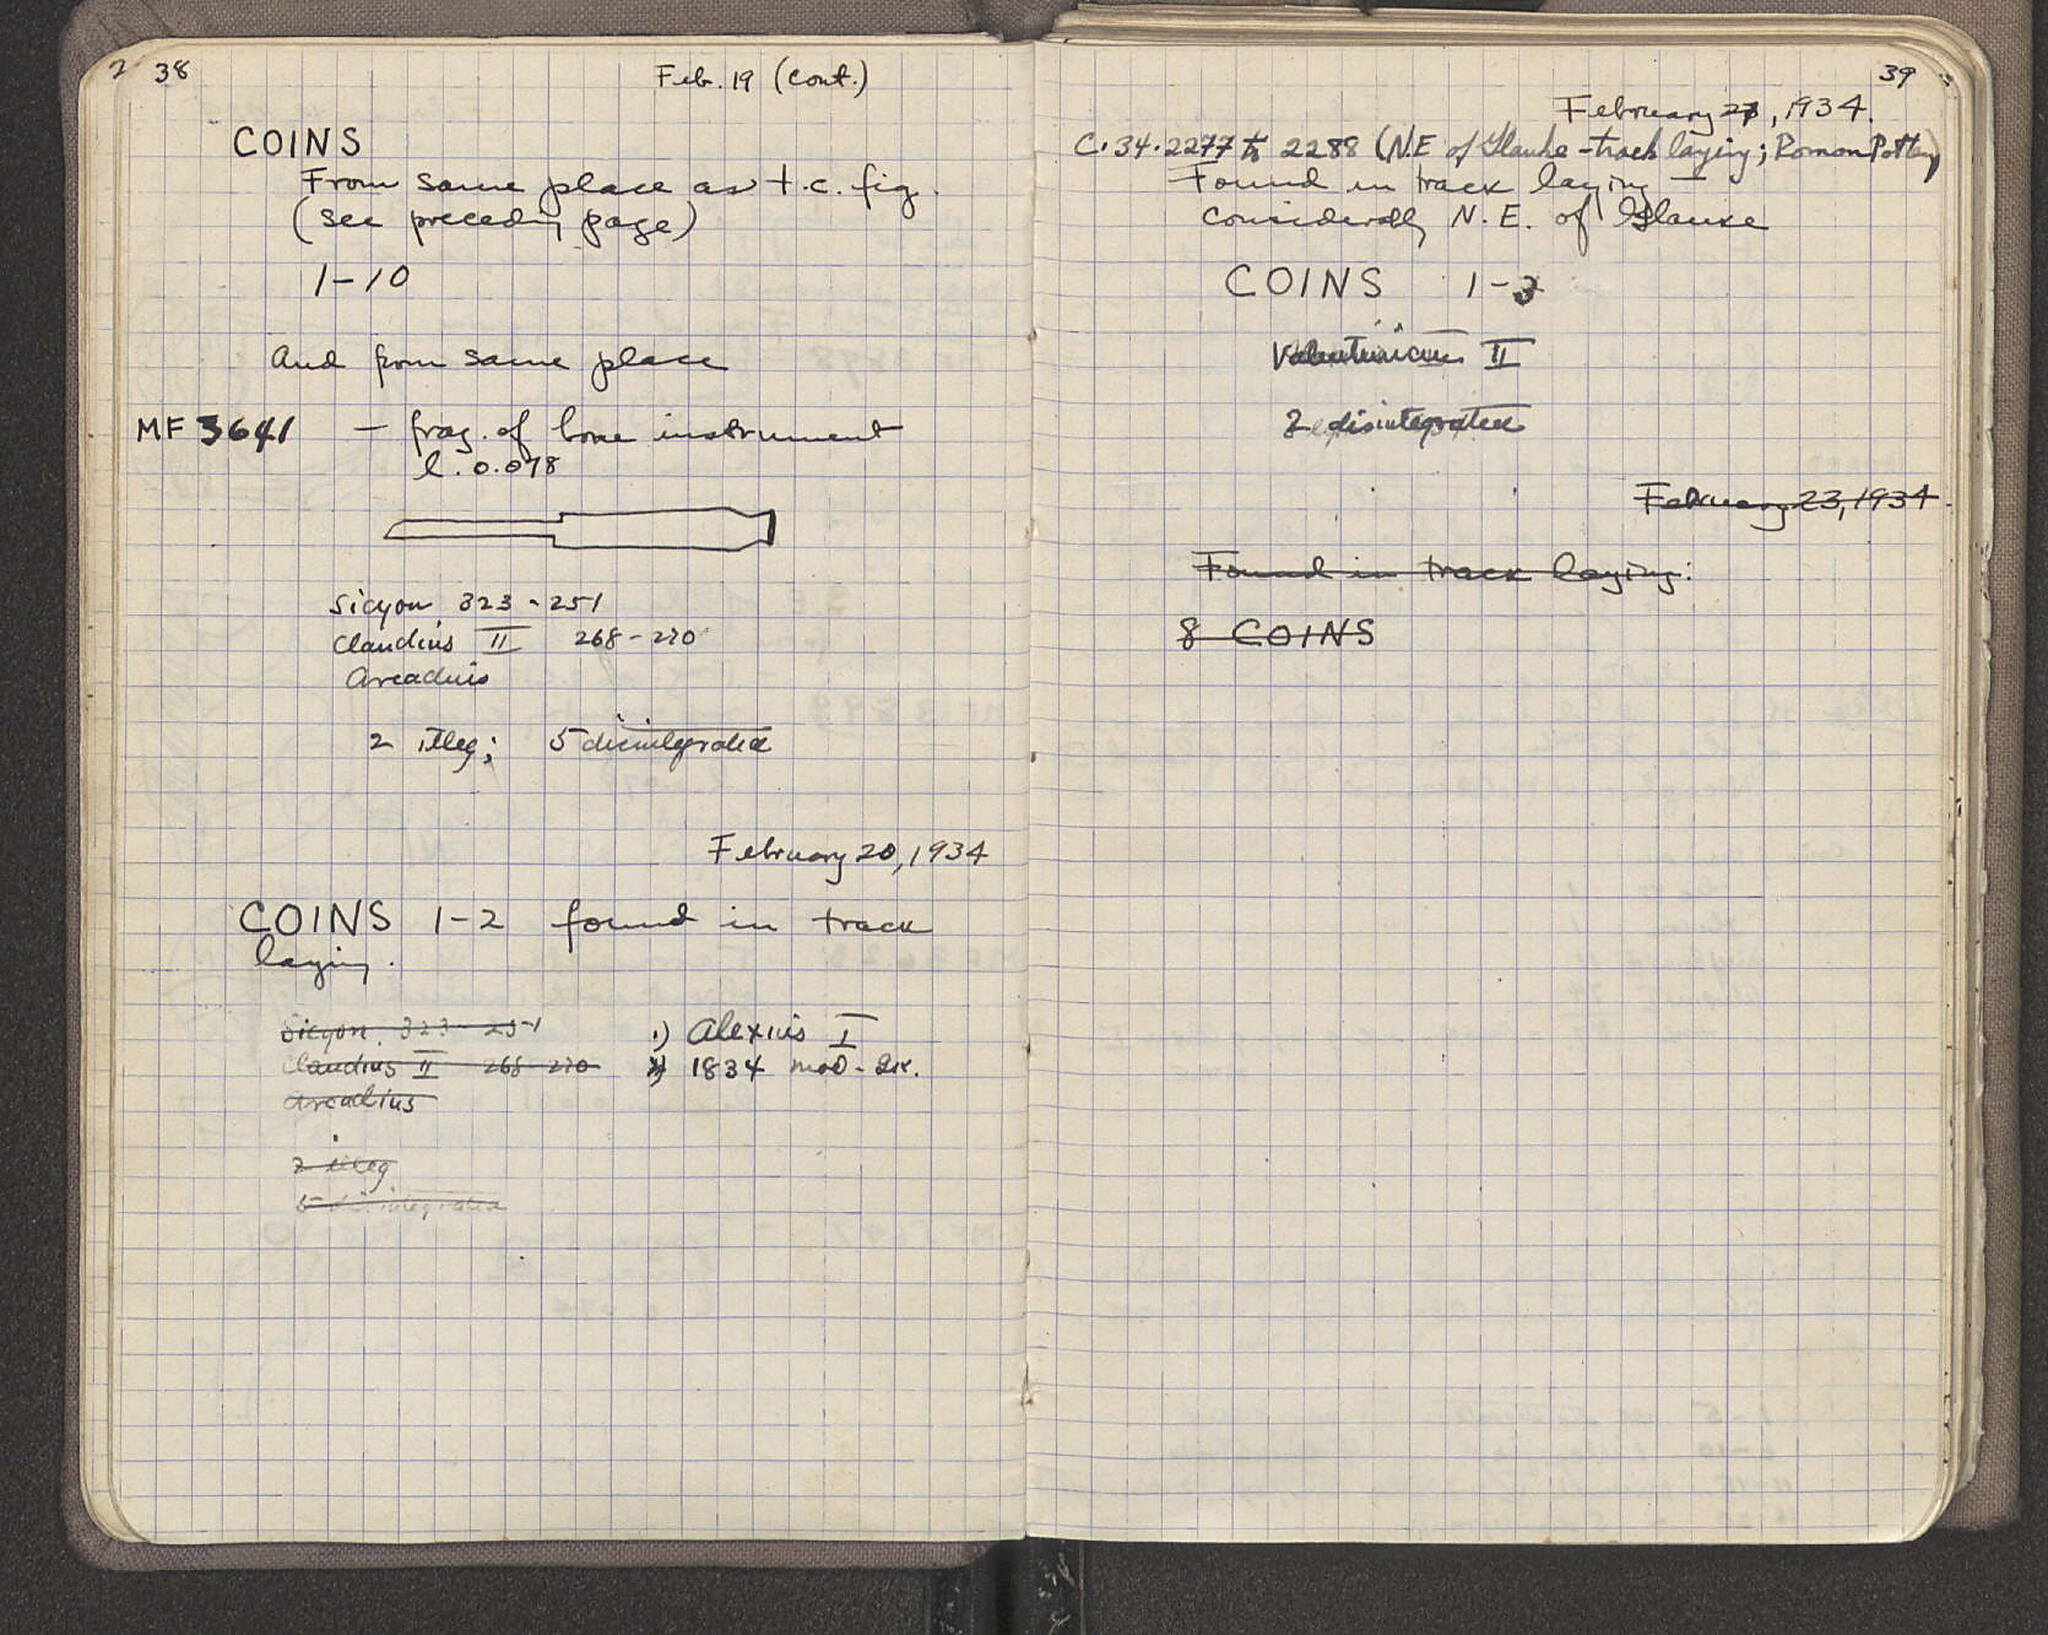 2 38
Feb. 19 (cont.)
COINS
From same place as t.c. fig.
(see preceding page)
1-10
And from same place
MF 3641 - frag. of bone instrument
l. 0.078
Sicyon 323-251
Claudius II 268-270
Arcadius
2 illeg; 5 disintegrated
February 20, 1934
COINS 1-2 found in track
laying.
Sicyon. 323-251
Claudius II 268-270
Arcadius
2 illeg
5 disintegrated
1) Alexius I
2) 1834 mod. Gr.
39
February , 1934.
C.34.2277 to 2288 (N.E of Glauke - track laying; Roman Pottery)
Found in track laying
considerably N.E. of Glauke
COINS 1-3
Valentinian II
2 disintegrated
February 23, 1934.
Found in track laying:
8 COINS